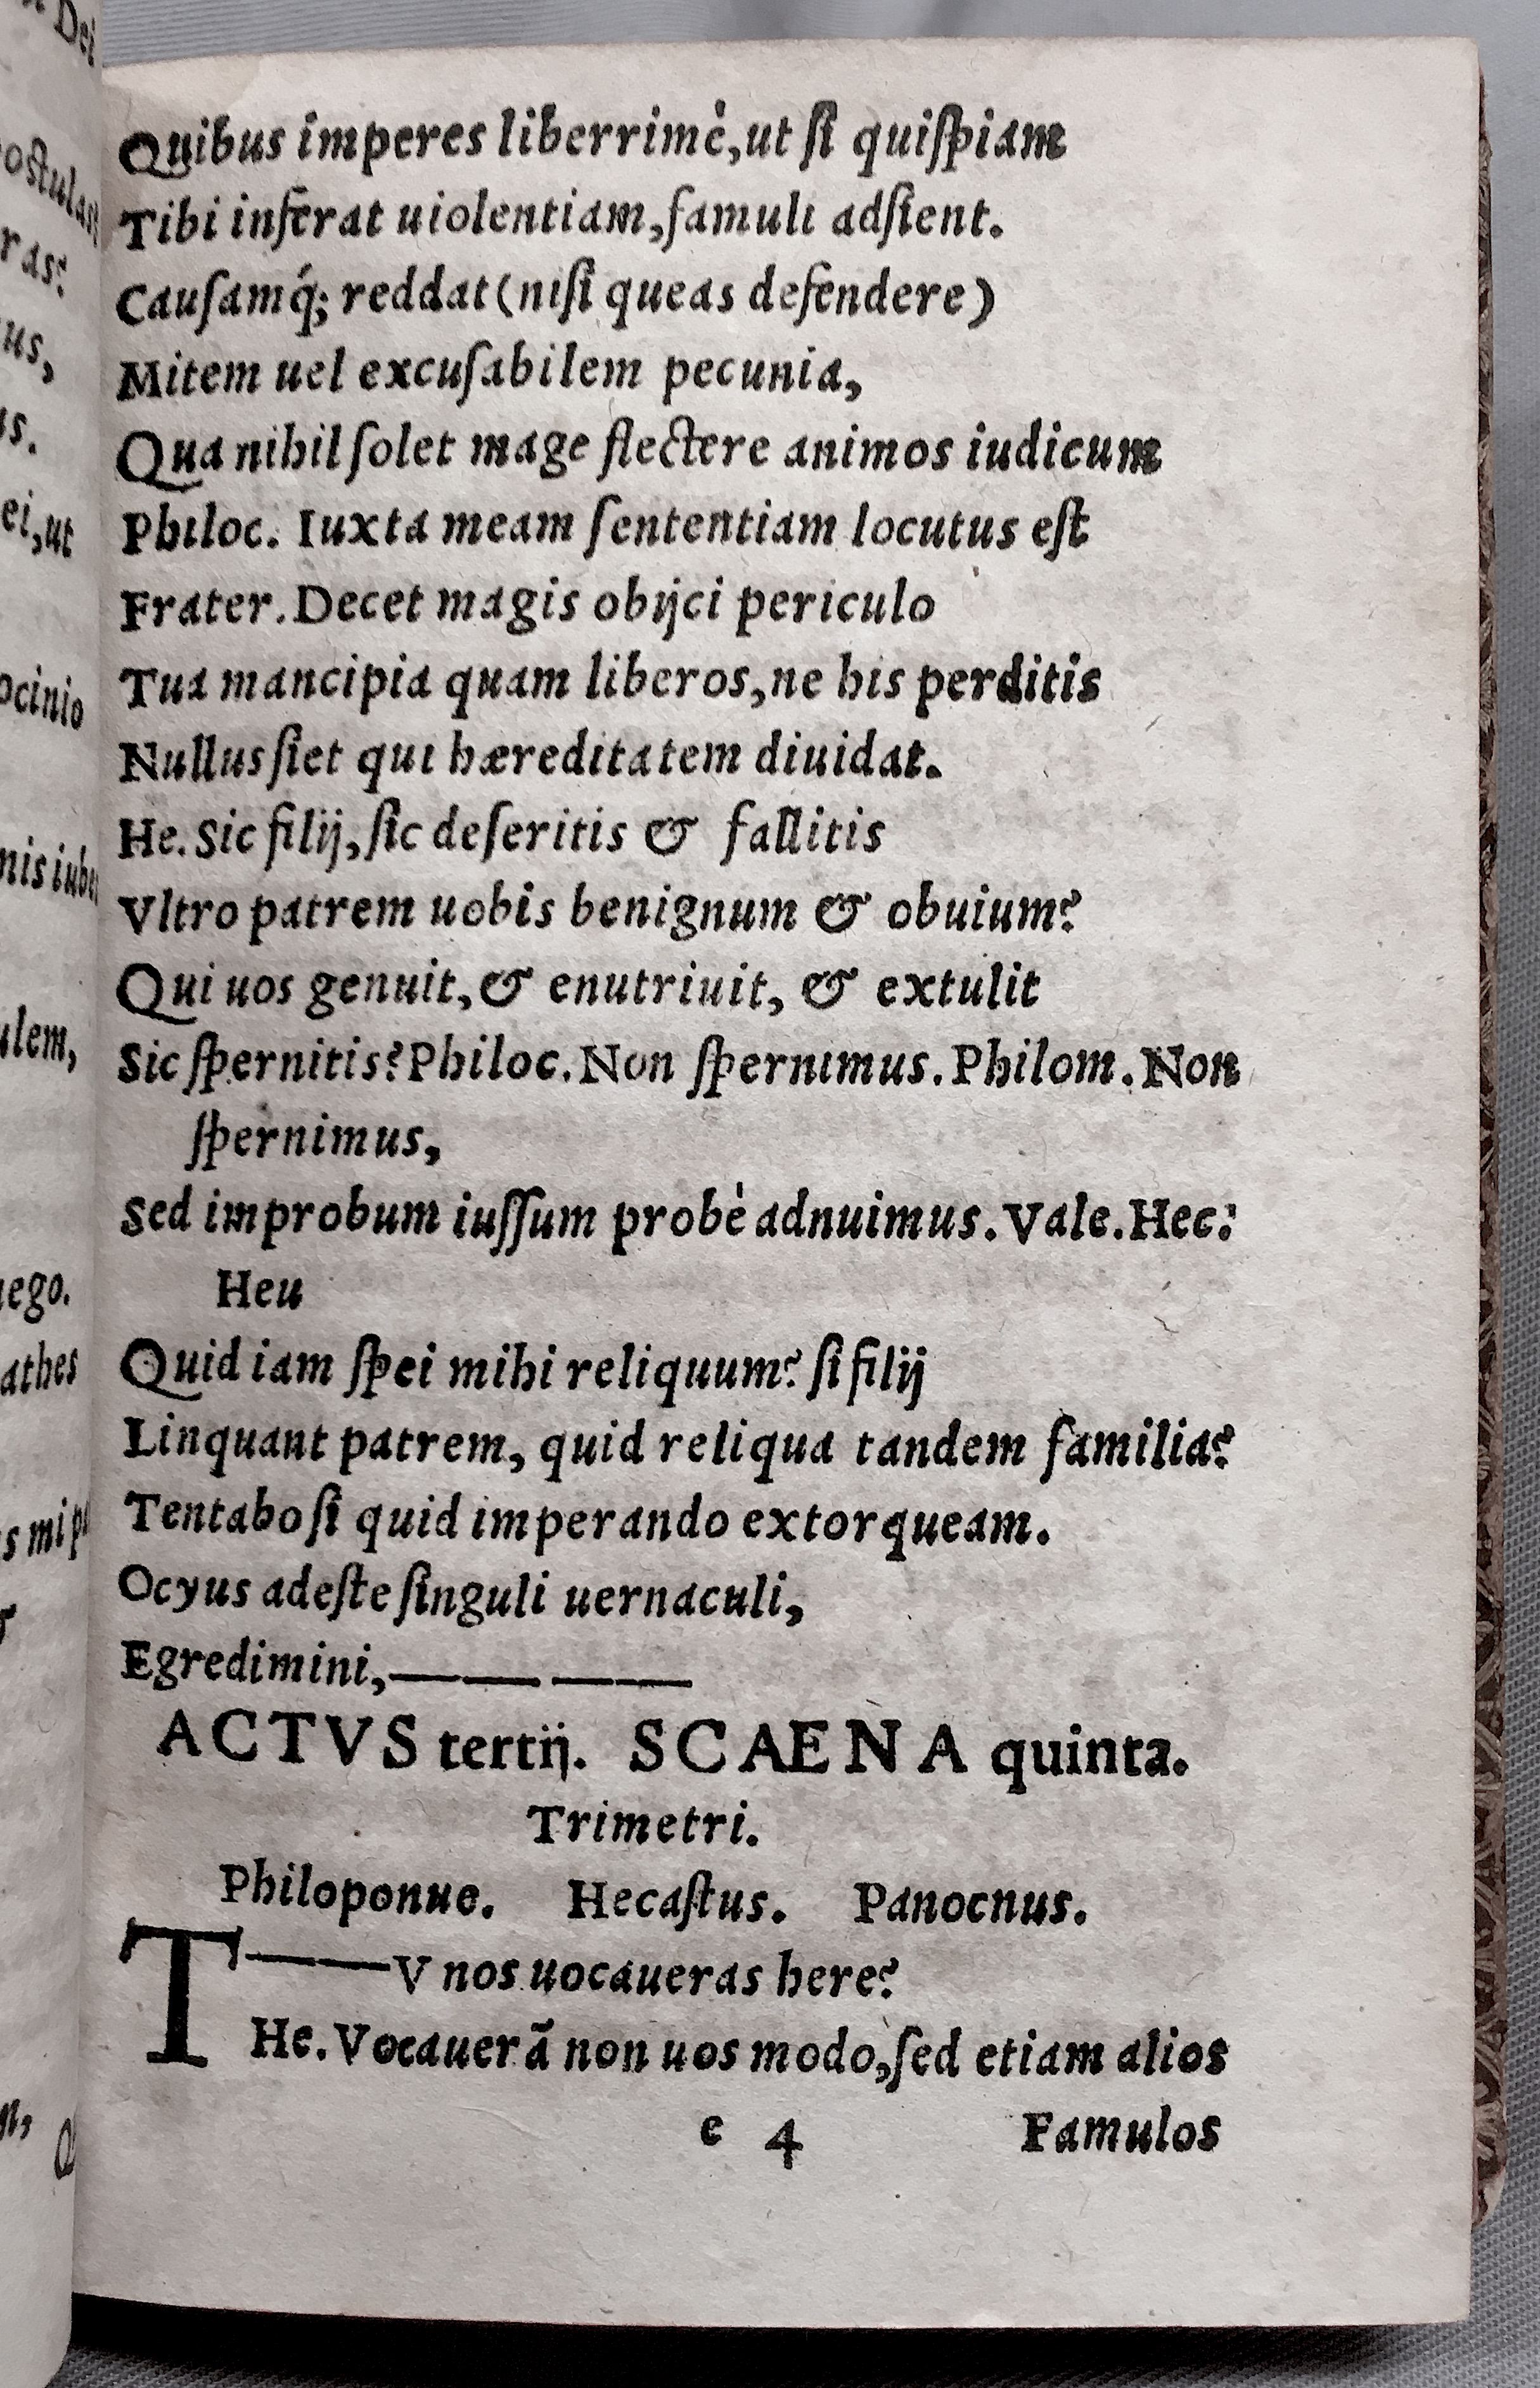 Quibus imperes liberrimè,ut ſi quiſpiam
Tibi inferat uiolentiam,famuli adſient.
Cauſamq́; reddat (niſi queas defendere)
Mitem uel excuſabilem pecunia,
Qua nihil ſolet mage flectere animos iudicum
Philoc. Iuxta meam ſententiam locutus eſt
Frater. Decet magis obijci periculo
Tua mancipia quam liberos,ne his perditis
Nullus ſiet qui hæreditatem diuidat.
He. Sic filij, ſic deſeritis & fallitis
Vltro patrem uobis benignum & obuium?
Qui uos genuit, & enutriuit, & extulit
Sic ſpernitis? Philoc. Non ſpernimus. Philom. Non
ſpernimus,
Sed improbum iuſſum probè adnuimus. Vale. Hec:
Heu
Quid iam ſpei mihi reliquum? ſi filij
Linquant patrem, quid reliqua tandem familia?
Tentabo ſi quid imperando extorqueam.
Ocyus adeſte ſinguli uernaculi,
Egredimini,—— ——
ACTVS tertij. SCAENA quinta.
Trimetri.
Philoponue. Hecaſtus. Panocnus.
T——V nos uocaueras here?
He. Vocauerã non uos modo,ſed etiam alios
e 4 Famulos